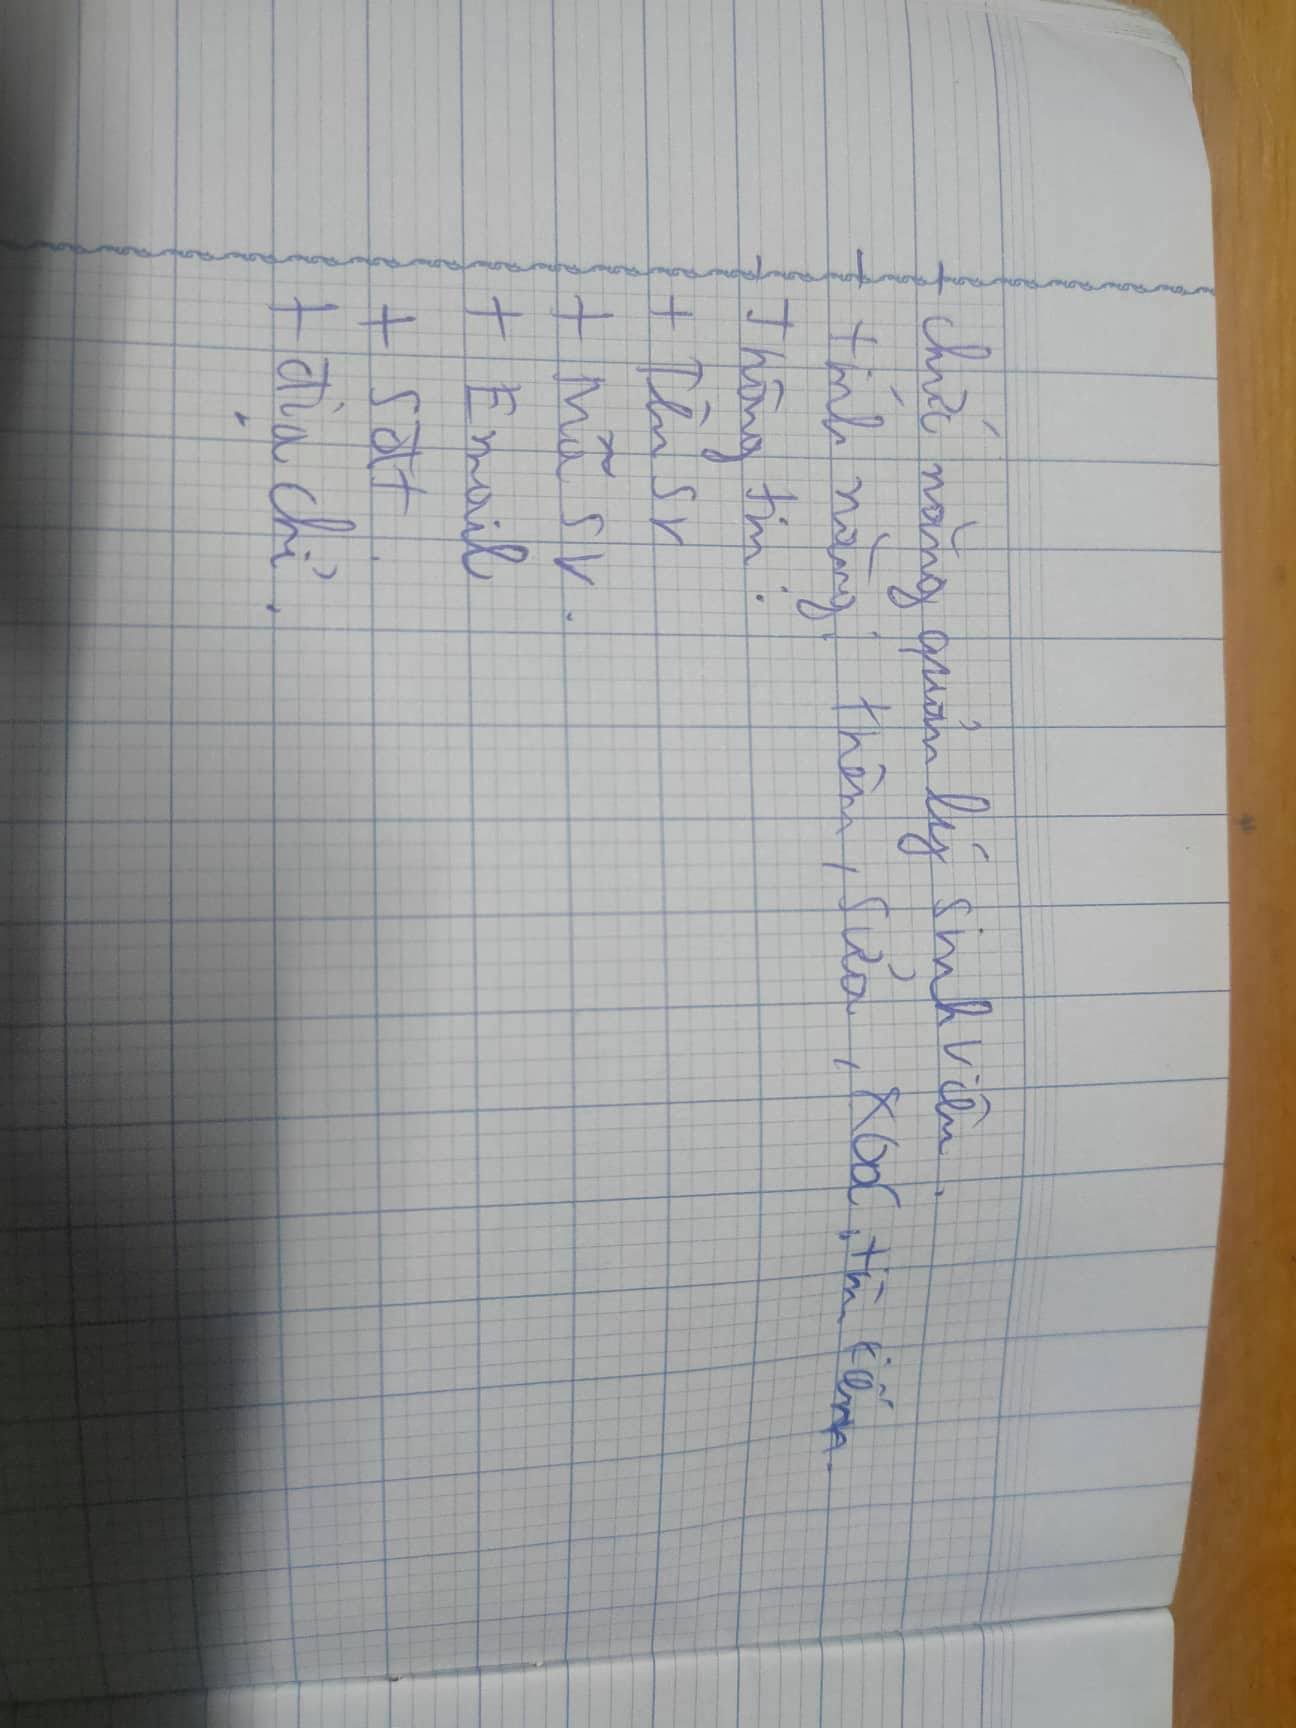 - Chức năng quản lý sinh viên.
- tính năng: thêm, sửa, xoá, tìm kiếm.
- Thông tin:
+ Tên SV
+ Mã SV.
+ Email
+ Sđt.
+ địa chỉ.